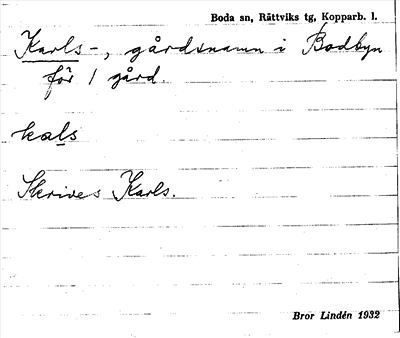 Boda sn, Rättviks tg, Kopparb. l.
Karls-, gårdsnamn i Bodbyn
för 1 gård.
kals
Skrives Karls.
Bror Lindén 1932